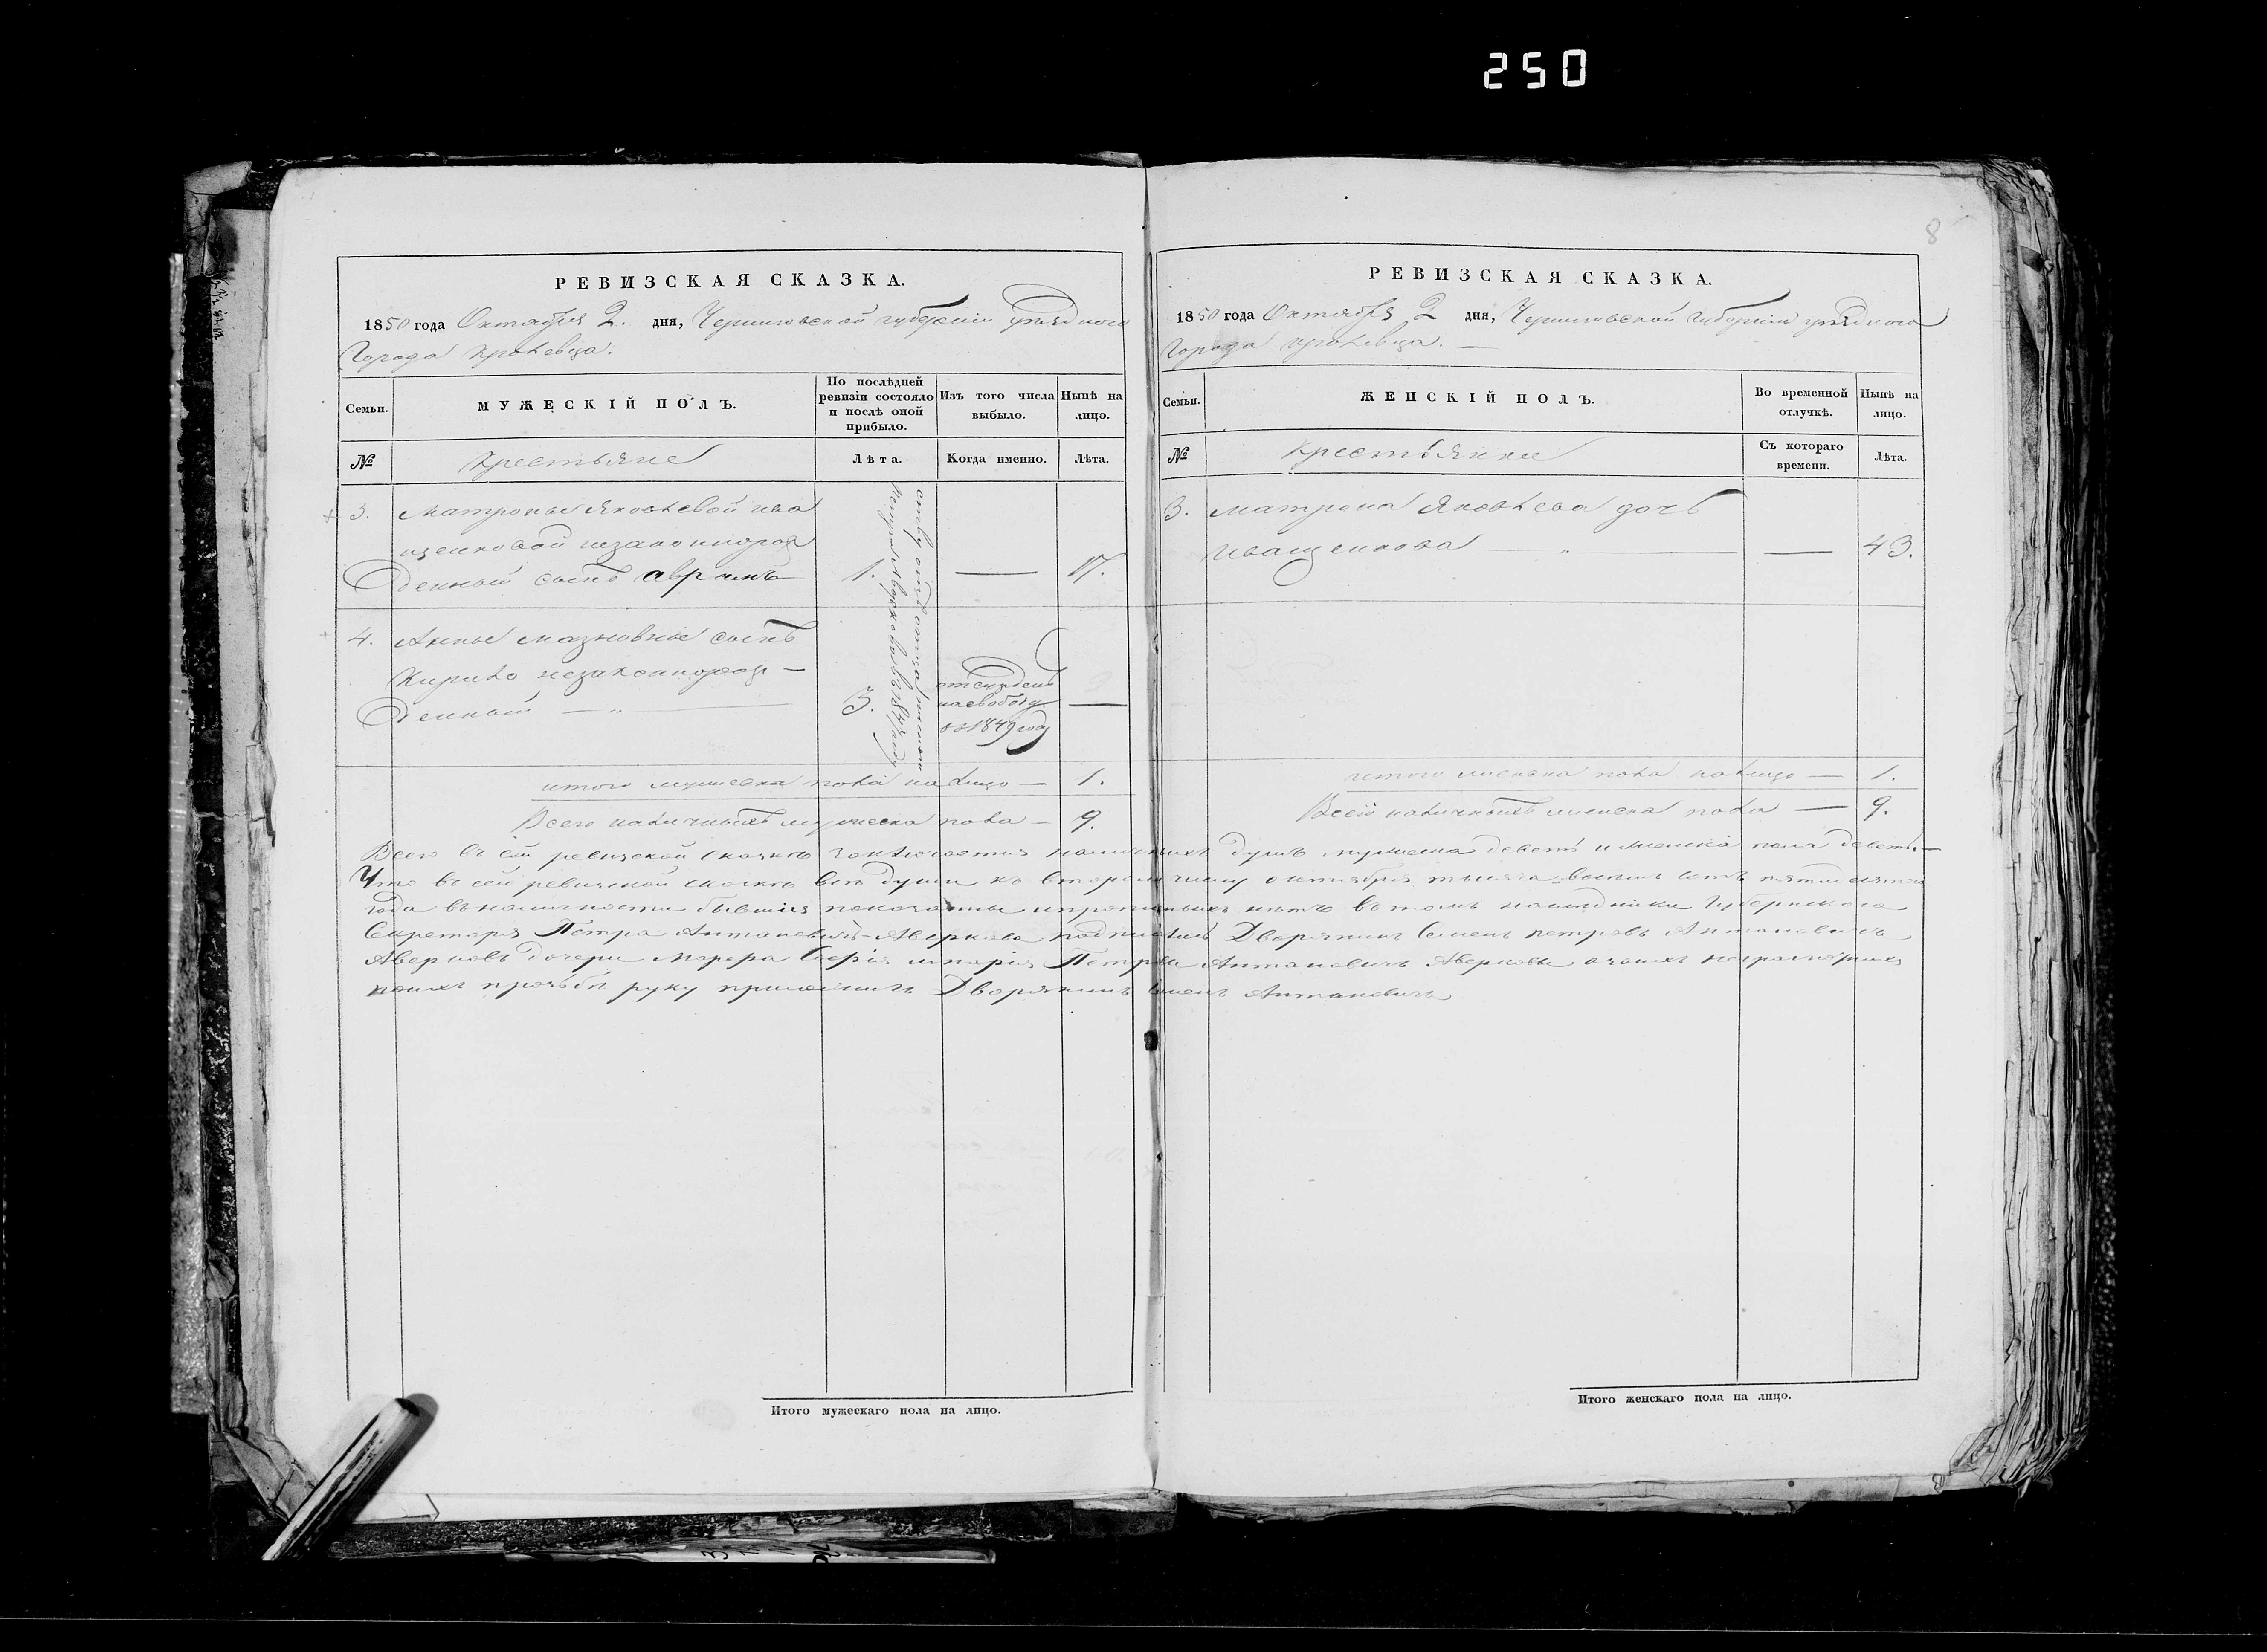 250
8
РЕВИЗСКАЯ СКАЗКА.
1850 года Октября 2. дня, Черниговской губерніи уѣзднаго
Города Кролевца.
Семьи.
МУЖЕСКІЙ ПОЛЪ.
По послѣдней ревизіи состояло и послѣ оной прибыло.
Изъ того числа выбыло.
Нынѣ на лицо.
№
Крестьяне
Лѣта.
Когда именно.
Лѣта.
3. Матроны Яковлевой Ива
щенковой незаконнорож
денный сынъ 1. — 17.
4. Анны сынъ
Кирило незаконнорож-
денный — „ — 3. —
на свободу
1849 году
итого мужеска пола на лицо — 1.
Всего наличныхъ мужеска пола — 9.
РЕВИЗСКАЯ СКАЗКА.
1850 года Октября 2 дня, Черниговской Губерніи уѣзднаго
Города Кролевца. —
Семьи.
ЖЕНСКІЙ ПОЛЪ.
Во временной отлучкѣ.
Нынѣ на лицо.
№
Крестьянки
Съ котораго времени.
Лѣта.
3. Матрона Яковлева дочь
Иващенкова — „ — — 43.
итого женска пола на лицо — 1.
Всего наличныхъ женска пола — 9.
Всего въ сей ревизской сказкѣ заключается наличныхъ душъ мужеска девять и женска пола девять. —
Что въ сей ревизской сказкѣ всѣ души къ второму числу октября тысяча восемь сотъ пятидесятого
года въ наличности бывшія показаны и прописныхъ нѣтъ въ томъ наслѣдники Губернскаго
Секретаря Петра Антоновичъ-Аверкова Дворянинъ Семенъ Петровъ Антоновичъ
Аверковъ дочери Марія Петровы Антоновичъ Аверковы а за нихъ неграмотныхъ
по ихъ прозьбѣ руку приложилъ Дворянинъ Семенъ Антоновичъ
Итого мужескаго пола на лицо.
Итого женскаго пола на лицо.